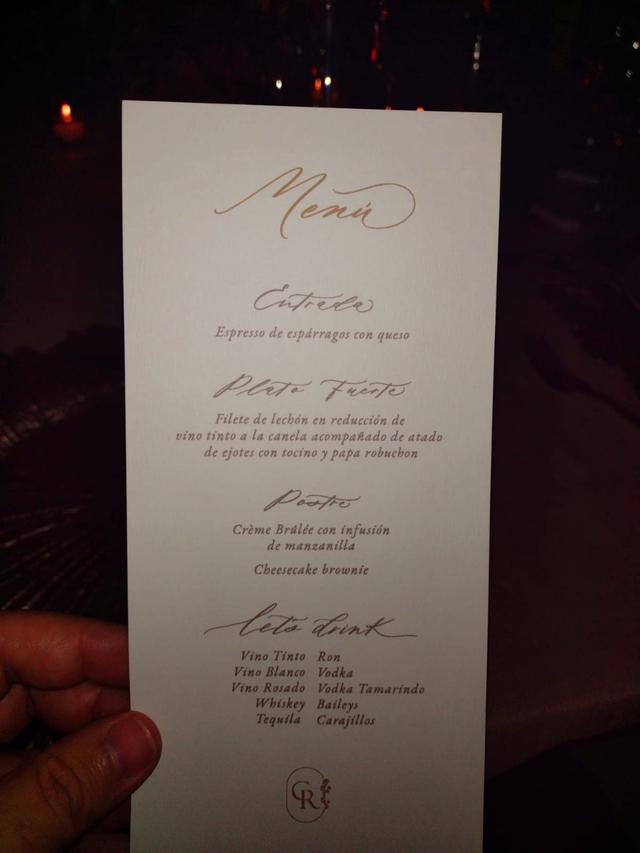 Menú
Entrada
Espresso de espárragos con queso
Plato Fuerte
Filete de lechón en reducción de
vino tinto a la canela acompañado de atado
de ejotes con tocino y papa robuchon
Postre
Crème Brûlée con infusión
de manzanilla
Cheesecake brownie
let's drink
Vino Tinto Ron
Vino Blanco Vodka
Vino Rosado Vodka Tamarindo
Whiskey Baileys
Tequila Carajillos
CR